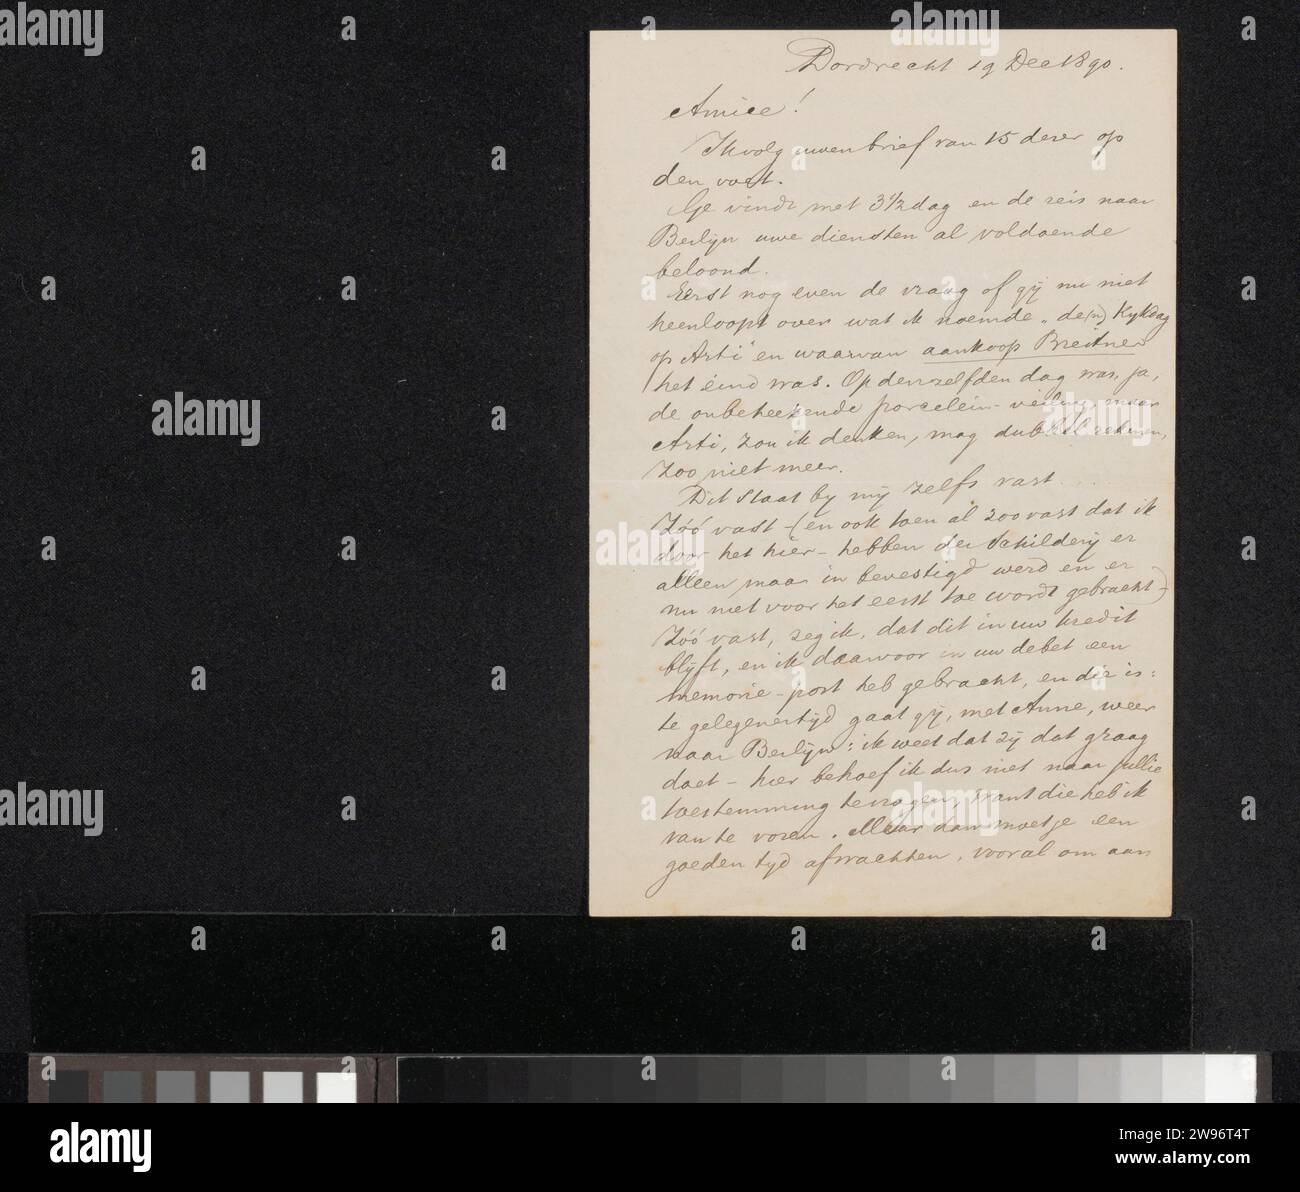 Dordrecht 19 Dec 1890.
Amice!
Ik volg uwen brief van 15 dezer op
den voet.
Ge vindt met 3 1/2 dag en de reis naar
Berlijn uwe diensten al voldoende
beloond.
Eerst nog even de vraag of gij nu niet
heenloopt over wat ik noemde „de(n) Kykdag
op Arti" en waarvan aankoop Breitner
het eind was. Op denzelfden dag was, ja,
de onbeteekende porcelein-veiling, maar
Arti, zou ik denken, mag dubbel rekenen,
zoo niet meer.
Dit staat by mij zelfs vast...
Zóó vast - (en ook toen al zoo vast dat ik
door het hier - hebben der Schilderij er
alleen maar in bevestigd werd en er
nu niet voor het eerst toe wordt gebracht) -
Zóó vast, zeg ik, dat dit in uw kredit
blyft, en ik daarvoor in uw debet een
memorie-post heb gebracht, en die is:
te gelegenertijd gaat gij, met Anne, weer
naar Berlijn: ik weet dat zij dat graag
doet - hier behoef ik dus niet naar jullie
toestemming te vragen, want die heb ik
van te voren. Maar dan moet je een
goeden tyd afwachten, vooral om aan
alamy
alamy
Image ID: 2W96T4T
www.alamy.com